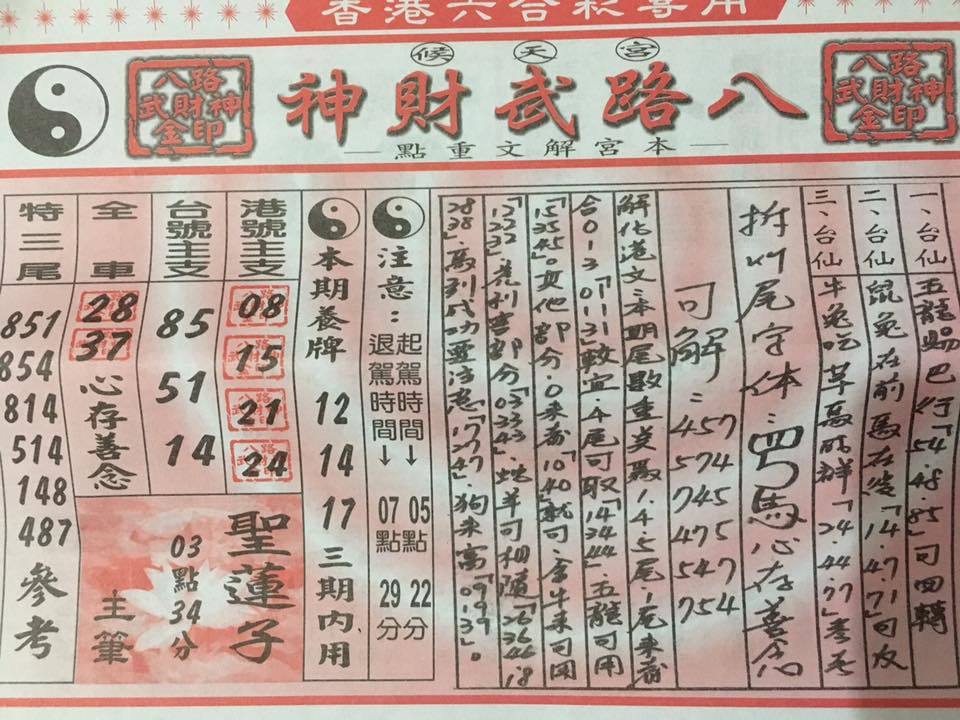 香港六合彩專用
候天宮
八路武財神
八路
武財神
金印
八路
武財神
金印
本宮解文重點
一、台仙
五龍
巴行「54.48.85」可回轉
二、台仙
鼠兔在前馬在後「14.47.71」可反
三、台仙
牛兔吃草馬成群「24.44.77」參考
拆川尾字体:四馬心存善念
可解:457
574
745
475
547
754
解化港文:本期尾數重炎為1.4.5尾.1尾來看
合013「01.11.31」較宜.4尾可取「14.24.34.44」五龍可用
「15.35.45」。其他部分0來看「10.40」就可:金牛來可用
「12.22.23」虎利害部分「03.33.43」蛇羊可相隨「26.36.46.18
28.38」馬到成功要注意「17.27.47」狗來高「09.19.39」。
注意:
起駕時間↓
05點
22分
退駕時間↓
07點
29分
本期養牌
12
14
17
三期內用
港號主支
08
15
21
24
台號主支
85
51
14
全車
28
37
心存善念
特三尾
851
854
814
514
148
487
參考
聖蓮子
03點34分
主筆